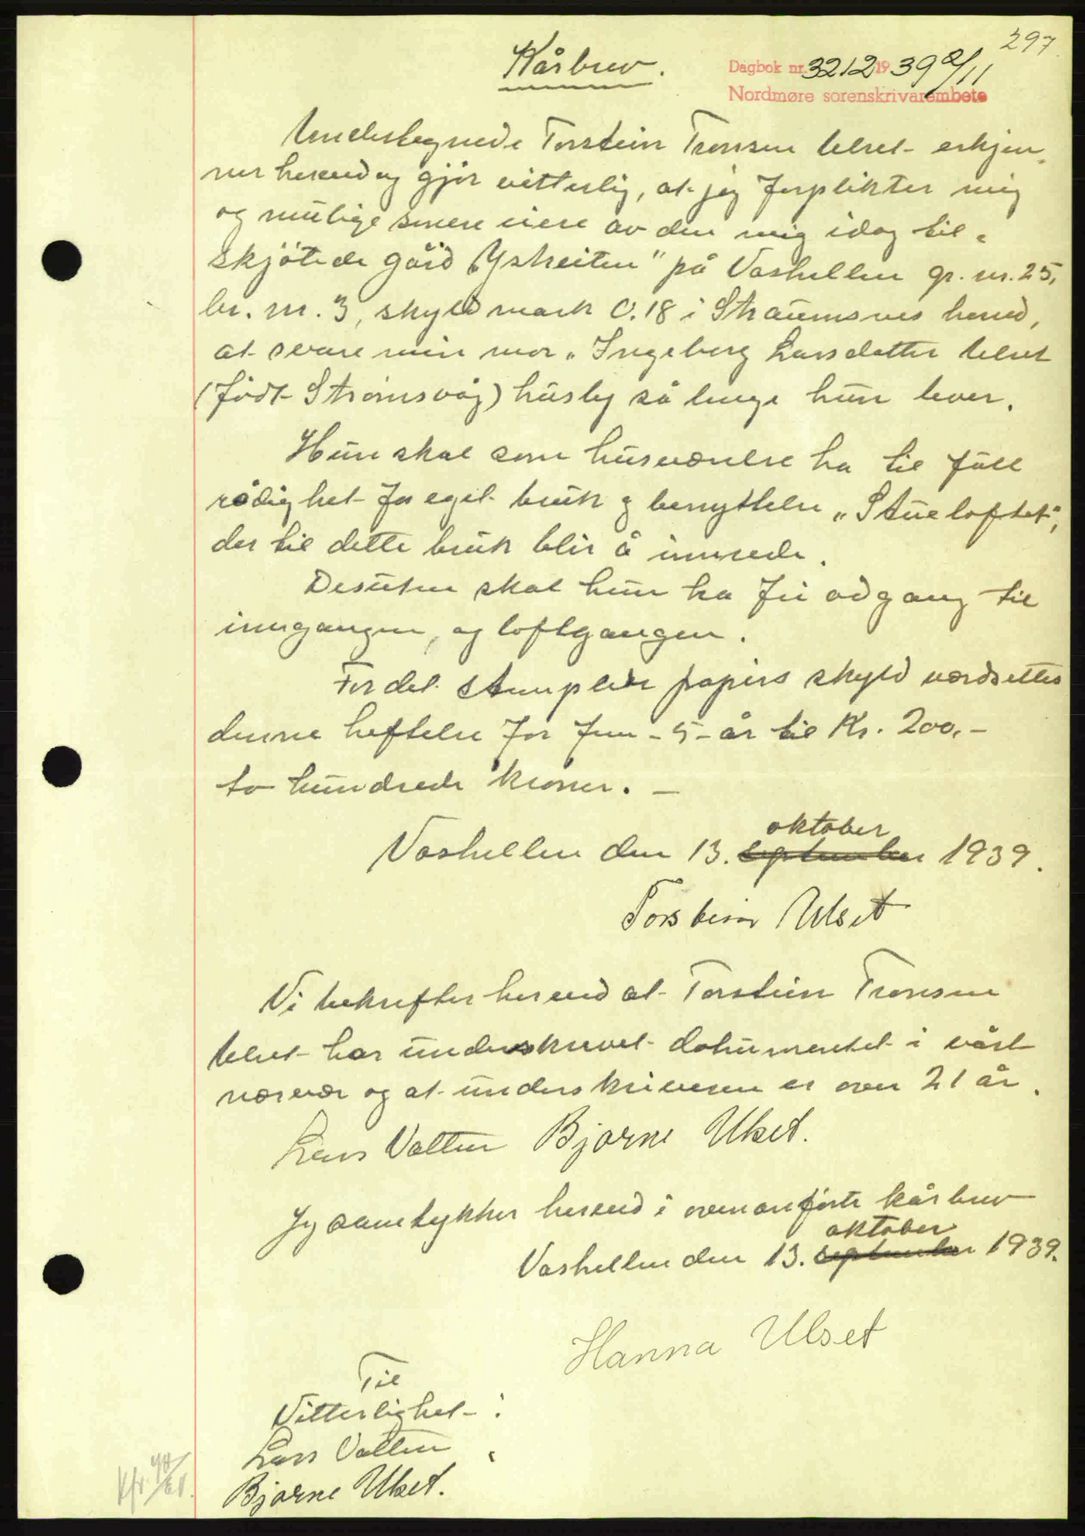 297
Kårbrev.
Dagbok nr. 3212 1939 2/11
Nordmøre sorenskrivarembete
Undertegnede Torstein Tronsen Ulset erkjen-
ner herved og gjør vitterlig, at jeg forplikter mig
og mulige senere eiere av den mig idag til-
skjøtede gård „Ysteiten" på Vashellen gr. nr. 25,
br. nr. 3, skyld mark 0.18 i Straumsnes herred,
at svare min mor, Ingeborg Larsdatter Ulset
(født Strømsvåg) husly så lenge hun lever.
Hun skal som husværelse ha til full
rådighet for eget bruk og benyttelse „Stueloftet",
der til dette bruk blir å innrede.
Desuten skal hun ha fri adgang til
inngangen, og loftgangen.
For det stemplede papirs skyld værdsettes
denne heftelse for fem - 5 - år til Kr. 200,-
to hundrede kroner. -
oktober
Vashellen den 13. september 1939.
Torstein Ulset
Vi bekrefter herved at Torstein Tronsen
Ulset har underskrevet dokumentet i vårt
nærvær og at underskriveren er over 21 år.
Lars Vatten Bjarne Ulset.
Jeg samtykker herved i ovenanførte kårbrev
oktober
Vashellen den 13. september 1939.
Hanna Ulset
Til
Vitterlighet:
Lars Vatten
Bjarne Ulset.